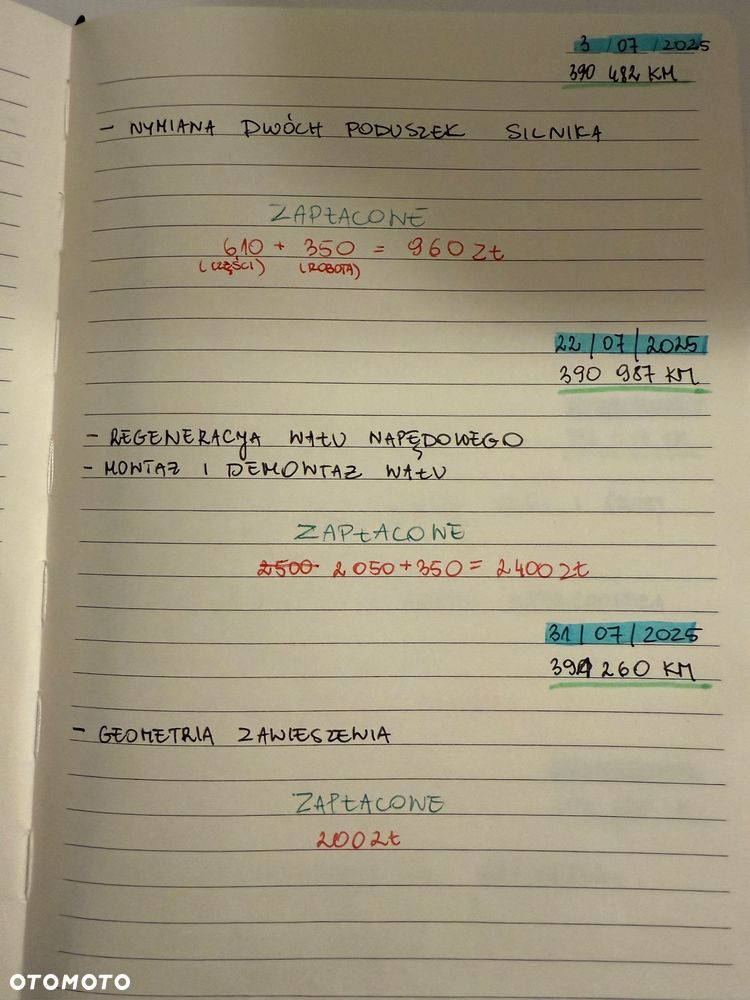 3/07/2025
390 482 KM
- WYMIANA DWÓCH PODUSZEK SILNIKA
ZAPŁACONE
610 + 350 = 960 Zł
(CZĘŚCI) (ROBOTA)
22/07/2025
390 987 KM
- REGENERACJA WAŁU NAPĘDOWEGO
- MONTAŻ I DEMONTAŻ WAŁU
ZAPŁACONE
2500 2050+350 = 2400 Zł
31/07/2025
391 260 KM
- GEOMETRIA ZAWIESZENIA
ZAPŁACONE
200 Zł
OTOMOTO